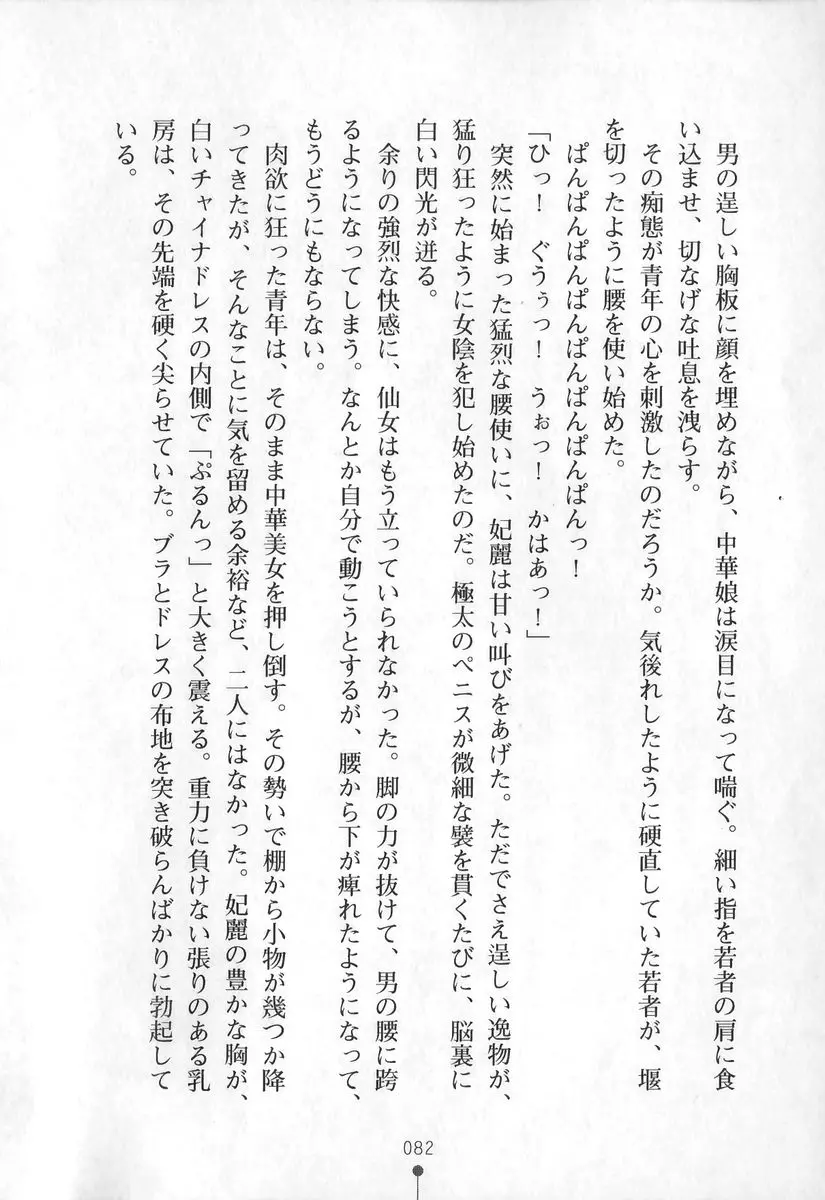 男の逞しい胸板に顔を埋めながら、中華娘は涙目になって喘ぐ。細い指を若者の肩に食
い込ませ、切なげな吐息を洩らす。
その痴態が青年の心を刺激したのだろうか。気後れしたように硬直していた若者が、堰
を切ったように腰を使い始めた。
ぱんぱんぱんぱんぱんぱんぱんぱんっ！
「ひっ！　ぐうぅっ！　うぉっ！　かはあっ！」
突然に始まった猛烈な腰使いに、妃麗は甘い叫びをあげた。ただでさえ逞しい逸物が、
猛り狂ったように女陰を犯し始めたのだ。極太のペニスが微細な襞を貫くたびに、脳裏に
白い閃光が迸る。
余りの強烈な快感に、仙女はもう立っていられなかった。脚の力が抜けて、男の腰に跨
るようになってしまう。なんとか自分で動こうとするが、腰から下が痺れたようになって、
もうどうにもならない。
肉欲に狂った青年は、そのまま中華美女を押し倒す。その勢いで棚から小物が幾つか降
ってきたが、そんなことに気を留める余裕など、二人にはなかった。妃麗の豊かな胸が、
白いチャイナドレスの内側で「ぷるんっ」と大きく震える。重力に負けない張りのある乳
房は、その先端を硬く尖らせていた。ブラとドレスの布地を突き破らんばかりに勃起して
いる。
082